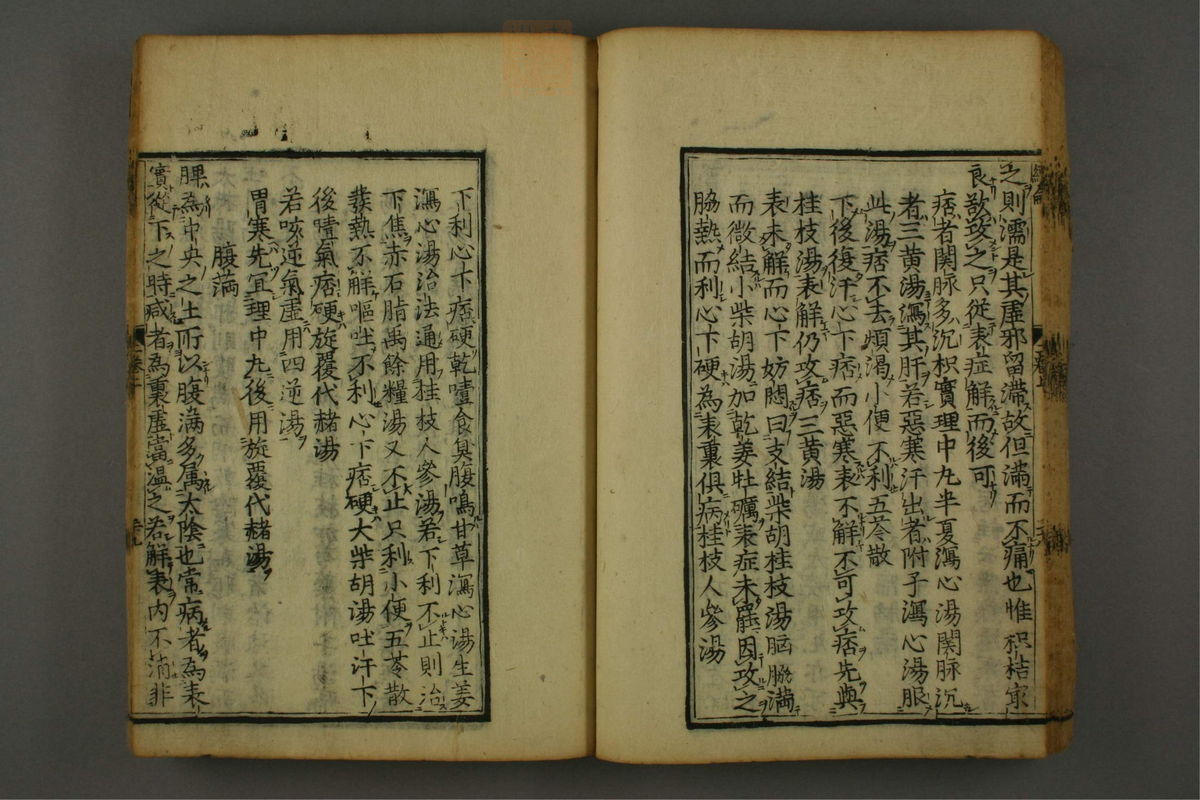 之則濡是其虚邪留滞故但満而不痛也惟枳桔㝡
良欲攻之只従表症解而後可
痞者関脉多沉枳實理中丸半夏瀉心湯関脉沉
者三黄湯瀉其肝若惡寒汗出者附子瀉心湯服
此湯痞不去煩渇小便不利五苓散
下後復汗心下痞而惡寒表不解不可攻痞先與
桂枝湯表解仍攻痞三黄湯
表未解而心下妨悶曰支結柴胡桂枝湯胸脇満
而微結小柴胡湯加乾姜牡礪表症未罷因攻之
脇熱而利心下硬為表裏俱病桂枝人參湯
下利心下痞硬乾噫食臭腹鳴甘草瀉心湯生姜
瀉心湯治法通用桂枝人參湯若下利不止則治
下焦赤石脂禹餘糧湯又不止只利小便五苓散
發熱不解嘔吐不利心下痞硬大柴胡湯吐汗下
後噫氣痞硬旋覆代赭湯
若咳逆氣虚用四逆湯
胃寒先宜理中丸後用旋覆代赭湯
腹満
脾為中央之土所以腹満多属太陰也常病者為表
實從下之時减者為裏虚當温之若解表内不消非